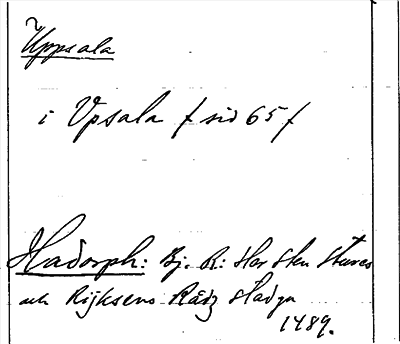 Uppsala
i Vpsala / sid 65 /
Hadorph: Bj. R: Her Sten Stures
och Rijksens Rådz stadga
1489.